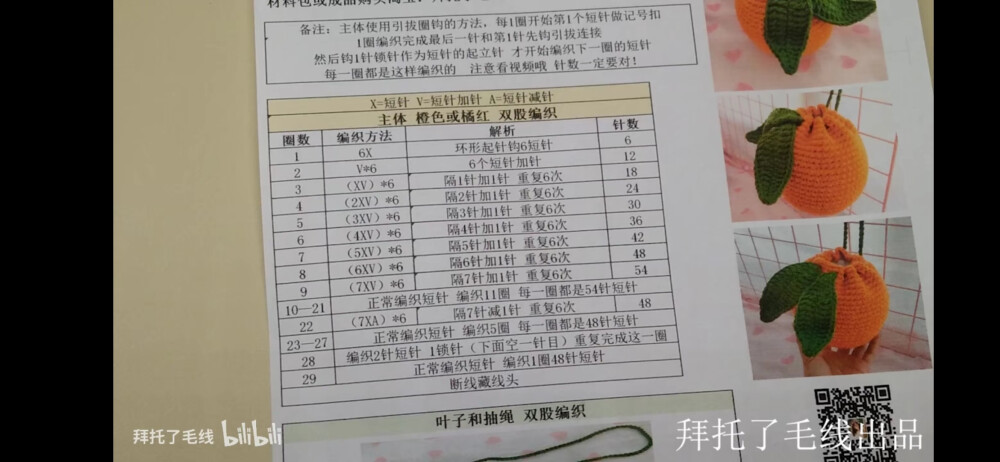 材料包或成品购买淘宝
备注：主体使用引拔圈钩的方法，每1圈开始第1个短针做记号扣
1圈编织完成最后一针和第1针先钩引拔连接
然后钩1针锁针作为短针的起立针 才开始编织下一圈的短针
每一圈都是这样编织的 注意看视频哦 针数一定要对！
X=短针 V=短针加针 A=短针减针
主体 橙色或橘红 双股编织
圈数 编织方法 解析 针数
1 6X 环形起针钩6短针 6
2 V*6 6个短针加针 12
3 （XV）*6 隔1针加1针 重复6次 18
4 （2XV）*6 隔2针加1针 重复6次 24
5 （3XV）*6 隔3针加1针 重复6次 30
6 （4XV）*6 隔4针加1针 重复6次 36
7 （5XV）*6 隔5针加1针 重复6次 42
8 （6XV）*6 隔6针加1针 重复6次 48
9 （7XV）*6 隔7针加1针 重复6次 54
10—21 正常编织短针 编织11圈 每一圈都是54针短针
22 （7XA）*6 隔7针减1针 重复6次 48
23—27 正常编织短针 编织5圈 每一圈都是48针短针
28 编织2针短针 1锁针（下面空一针目）重复完成这一圈
29 正常编织短针 编织1圈48针短针
断线藏线头
叶子和抽绳 双股编织
拜托了毛线 bilibili
拜托了毛线出品